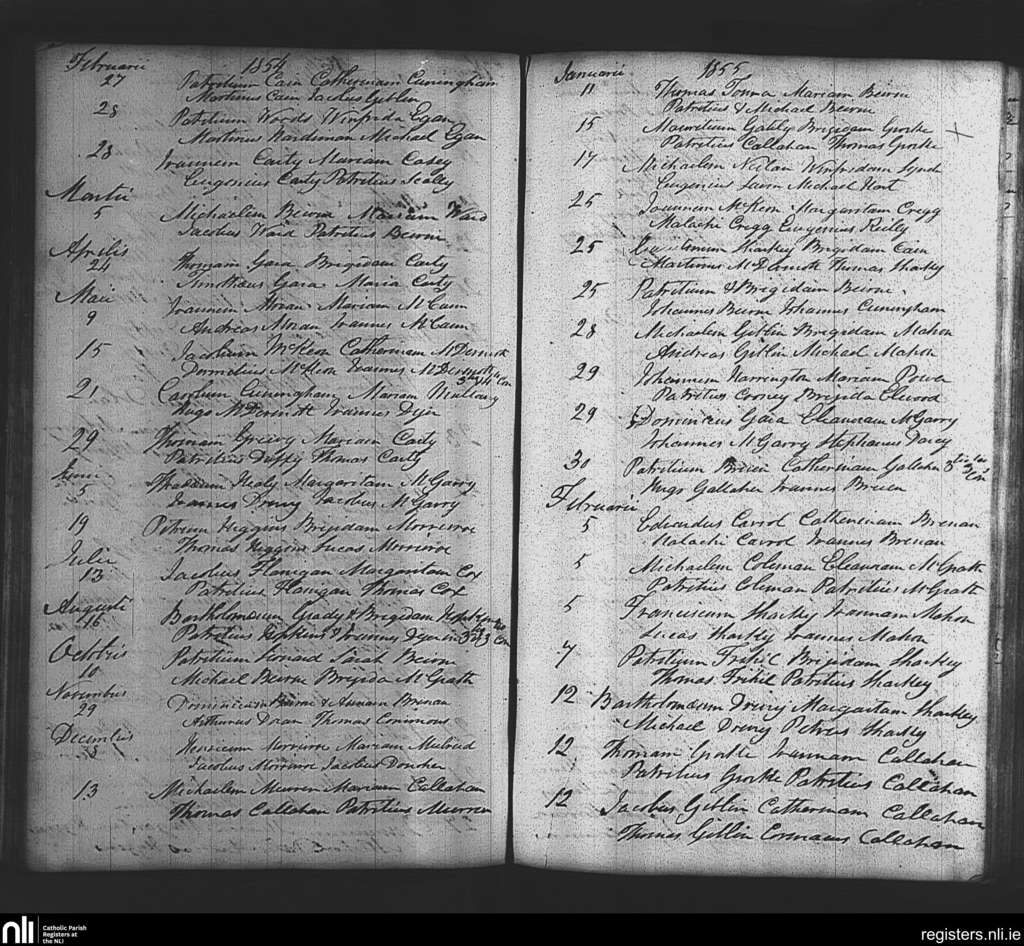 Februarii 1854
27 Patritium Cain Catherinam Cuningham
Martinus Cain Jacobus Giblin
28 Patritium Words Winfrida Egan
Martinus Hardiman Michael Egan
28 Joannem Caity Mariam Casey
Eugenius Caity Patritius Scally
Martii
5 Michaelem Beirne Mariam Ward
Jacobus Ward Patritius Beirne
Aprilis
24 Thomam Gara Brigidam Caity
Timotheus Gara Maria Caity
Maii
9 Joannem Moran Mariam McCann
Andreas Moran Joannes McCann
15 Jacobum McKeon Catherinam McDermott
Dornelius McKeon Joannes McDermott
21 Carolum Cuningham Mariam Mullany
Hugo McDermott Joannes Dyer
29 Thomam Grievy Mariam Caity
Patritius Duffy Thomas Caity
Junii
5 Thadeum Healy Margaritam McGarry
Joannes Drury Jacobus McGarry
19 Petrum Higgins Brigidam Morrisroe
Thomas Higgins Lucas Morrisroe
Julii
13 Jacobus Flanigan Margaritam Cox
Patritius Flanigan Thomas Cox
Augusti
16 Bartholomeum Grady & Brigidam Hopkins
Patritius Hopkins & Joannes Dyer in 3 & 3 Con
Octobris
10 Patritium Leonard Sarah Beirne
Michael Beirne Brigida McGrath
Novembris
29 Dominicum Beirne & Annam Brenan
Arthurus Doran Thomas Commons
Decembris
8 Morrisroe Mariam Mulreid
Jacobus Morrisroe Jacobus Donohen
13 Michaelem Murren Mariam Callahan
Thomas Callahan Patritius Murren
Januarii 1855
11 Thomas Tonra Mariam Beirne
Patritius & Michael Beirne
15 Mauritium Gately Brigidam Grorke
Patritius Callahan Thomas Grorke
17 Michaelem Neilan Winfridam Lynch
Eugenius Lavin Michael Hart
25 Joannem McKeon Margaritam Cregg
Malachi Cregg Eugenius Reilly
25 Sharkey Brigidam Cain
Martinus McDermott Thomas Sharkey
25 Patritium & Brigidam Beirne
Johannes Beirne Johannes Cuningham
28 Michaelem Giblin Brigidam Mahon
Andreas Giblin Michael Mahon
29 Johannem Harrington Mariam Power
Patritius Cooney Brigida Elwood
29 Dominicus Gara Eleanoram McGarry
Johannes McGarry Stephanus Davey
30 Patritium Breen Catherinam Gallaher
Hugo Gallaher Joannes Breen
Februarii
5 Edwardus Carrol Catherinam Brenan
Malachi Carrol Joannes Brenan
5 Michaelem Coleman Eleanoram McGrath
Patritius Cleman Patritius McGrath
5 Franciscum Sharkey Joannam Mahon
Lucas Sharkey Joannes Mahon
7 Patritium Frehil Brigidam Sharkey
Thomas Frehil Patritius Sharkey
12 Bartholomeum Drury Margaritam Sharkey
Michael Drury Petrus Sharkey
12 Thomam Grorke Joannam Callahan
Patritius Grorke Patritius Callahan
12 Jacobus Giblin Catherinam Callahan
Thomas Giblin Cormacus Callahan
nli Catholic Parish
Registers at
the NLI
registers.nli.ie